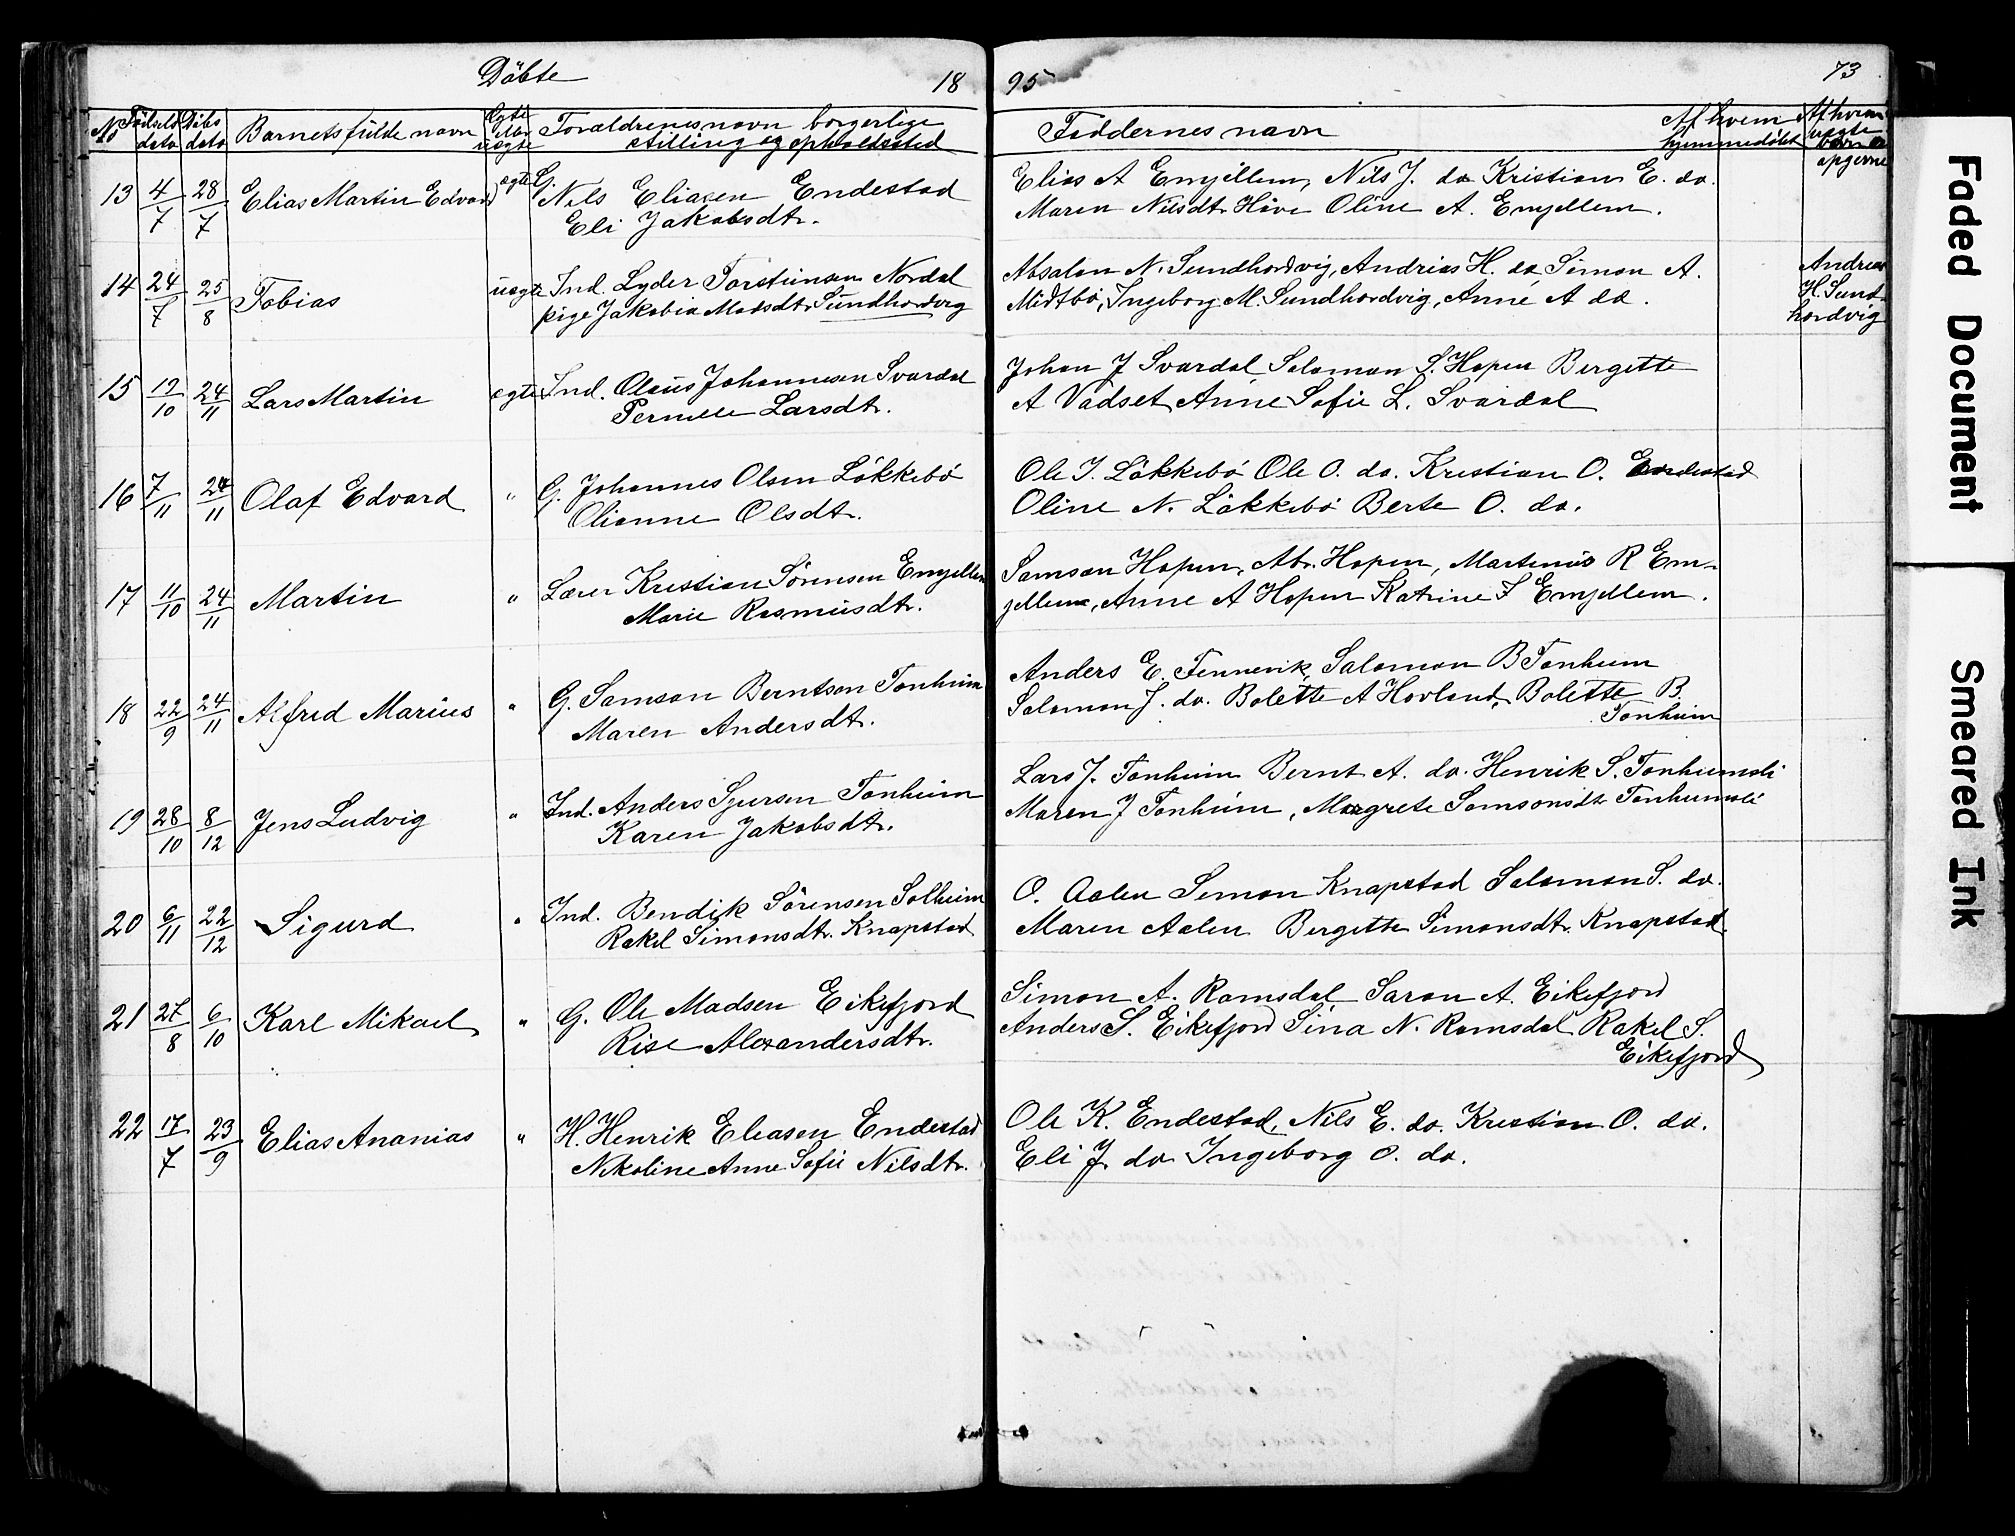 Döbte 18 95 73
No Födsels dato Döbs dato Barnets fulde navn Ægte eller uægte Foræeldrenes navn borgerlige stilling og opholdssted Faddernes navn Af hvem hjemmedöbt Af hvem uægte opgivne
13 4/7 28/7 Elias Martin Edvard ægte G. Nils Eliasen Endestad Elias A Emjellem, Nils J. do Kristian E. do.
Eli Jakobsdtr. Maren Nilsdtr Hove Oline A. Emjellem.
14 24/7 25/8 Tobias uægte Ind. Lyder Torstensen Nordal Absalon N. Sundhordvig, Andrias H. do Simon A. Andreas
pige Jakobia Madsdtr Sundhordvig Midtbö, Ingeborg M. Sundhordvig, Anne A do. H. Sund-
hordvig
15 12/10 24/11 Lars Martin ægte Ind. Olaus Johannesen Svardal Johan J Svardal Salomon S. Hopen Bergette
Pernille Larsdtr. A Vadset Anne Sofie L. Svardal
16 7/11 24/11 Olaf Edvard " G. Johannes Olsen Lökkebö Ole J. Lökkebö Ole O. do. Kristian O. Endestad
Olianne Olsdtr. Oline N. Lökkebö Berte O. do.
17 11/10 24/11 Martin " Lærer Kristian Sörensen Emjellem Samson Hopen, Abr. Hopen, Martinus R Em-
Marie Rasmusdtr. jellem, Anne A Hopen Katrine F Emjellem.
18 22/9 24/11 Alfred Marius " G. Samson Berntsen Tonheim Anders E. Fennevik, Salomon B Tonheim
Maren Andersdtr. Salomon J. do. Bolette A Hovland, Bolette B.
Tonheim
19 28/10 8/12 Jens Ludvig " Ind. Anders Sjursen Tonheim Lars J. Tonheim Bernt A. do. Henrik S. Tonheimsli
Karen Jakobsdtr. Maren J Tonheim, Margrete Samsonsdtr Tonheimsli
20 6/11 22/12 Sigurd " Ind. Bendik Sörensen Solheim O. Aalen Simon Knapstad Salomon S. do.
Rakel Simonsdtr. Knapstad Maren Aalen Bergitte Simonsdtr. Knapstad
21 27/8 6/10 Karl Mikael " G. Ole Madsen Eikefjord Simon A. Ramsdal Saron A. Eikefjord
Rise Alexandersdtr. Anders S. Eikefjord Sina N. Ramsdal Rakel S.
Eikefjord
22 17/7 23/9 Elias Ananias " H. Henrik Eliasen Endestad Ole K. Endestad, Nils E. do. Kristian O. do.
Nikoline Anne Sofie Nilsdtr. Eli J do Ingeborg O. do.
Faded Document
Smeared Ink